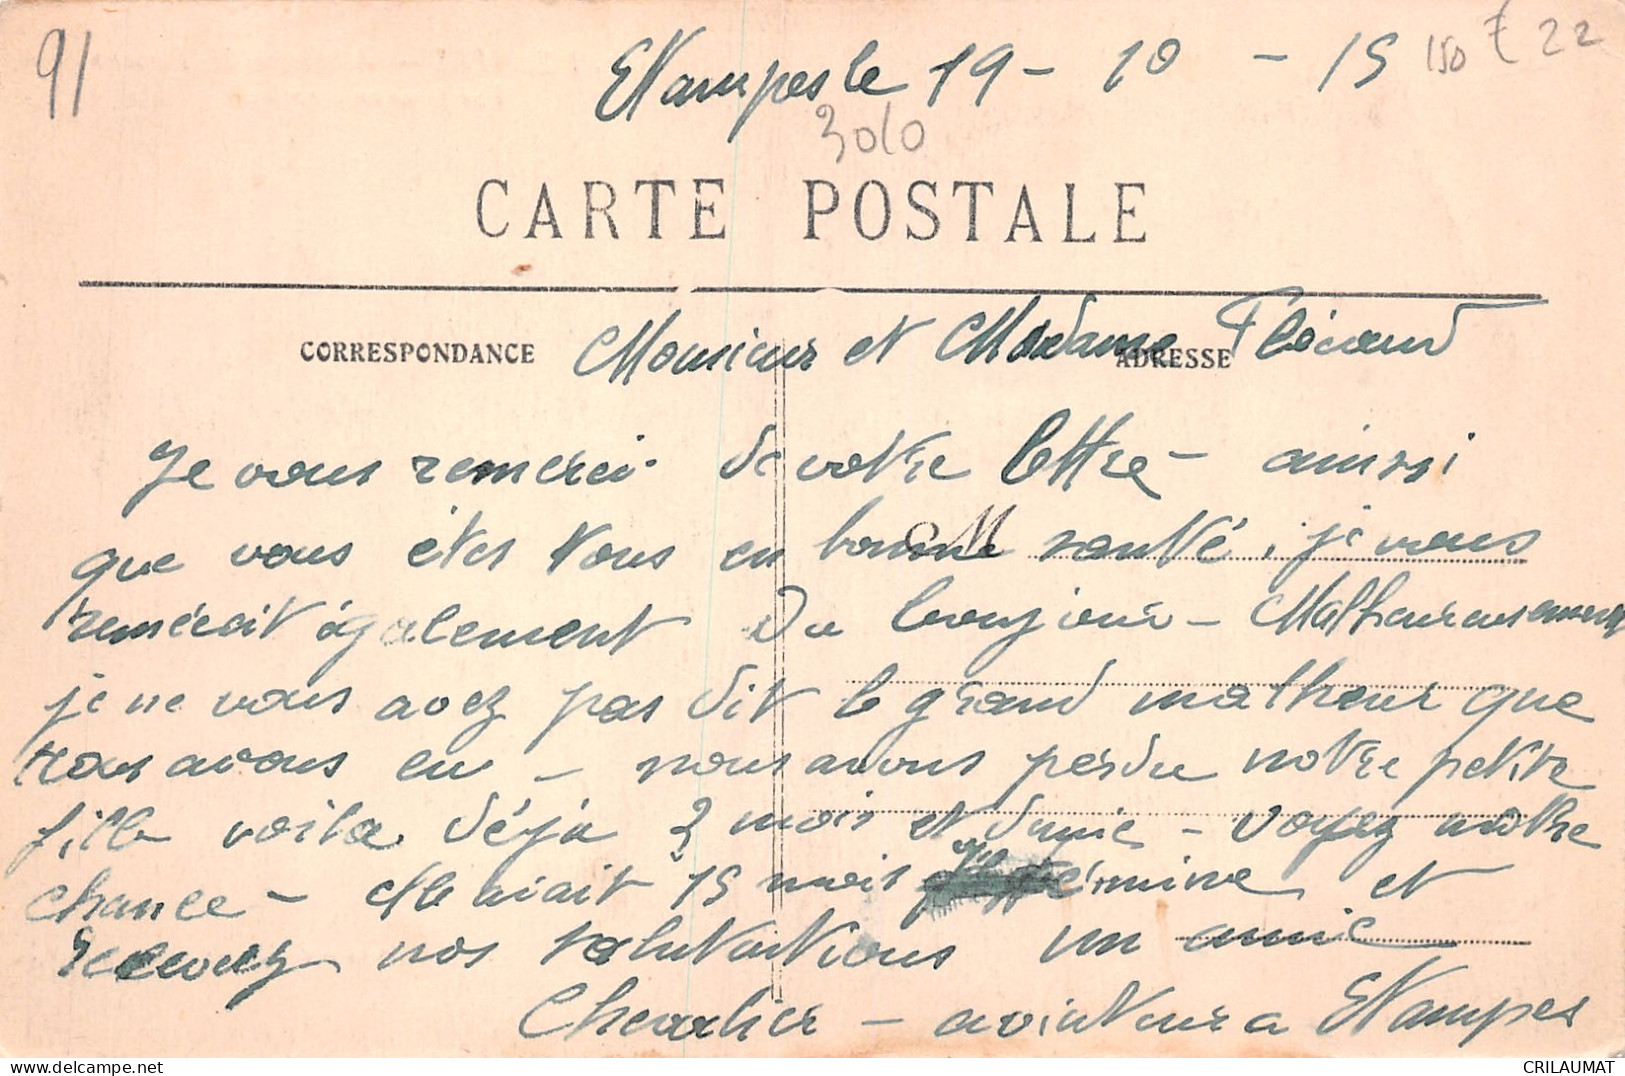 91
Etampes le 19 - 10 - 15
150 £ 22
3010
CARTE POSTALE
CORRESPONDANCE
ADRESSE
Monsieur et Madame
Je vous remerci de votre lettre - ainsi
que vous êtes tous en bonne santé, je vous
remérait également du bonjour - Malheureusement
je ne vous avez pas dit le grand malheur que
nous avons eu - nous avons perdu notre petite
fille voila déjà 2 mois et demie - voyez nothre
chance - elle aiait 15 mois je términe et
recevez nos salutations un amie
Chevalier - aviateur a Etampes
CRILAUMAT